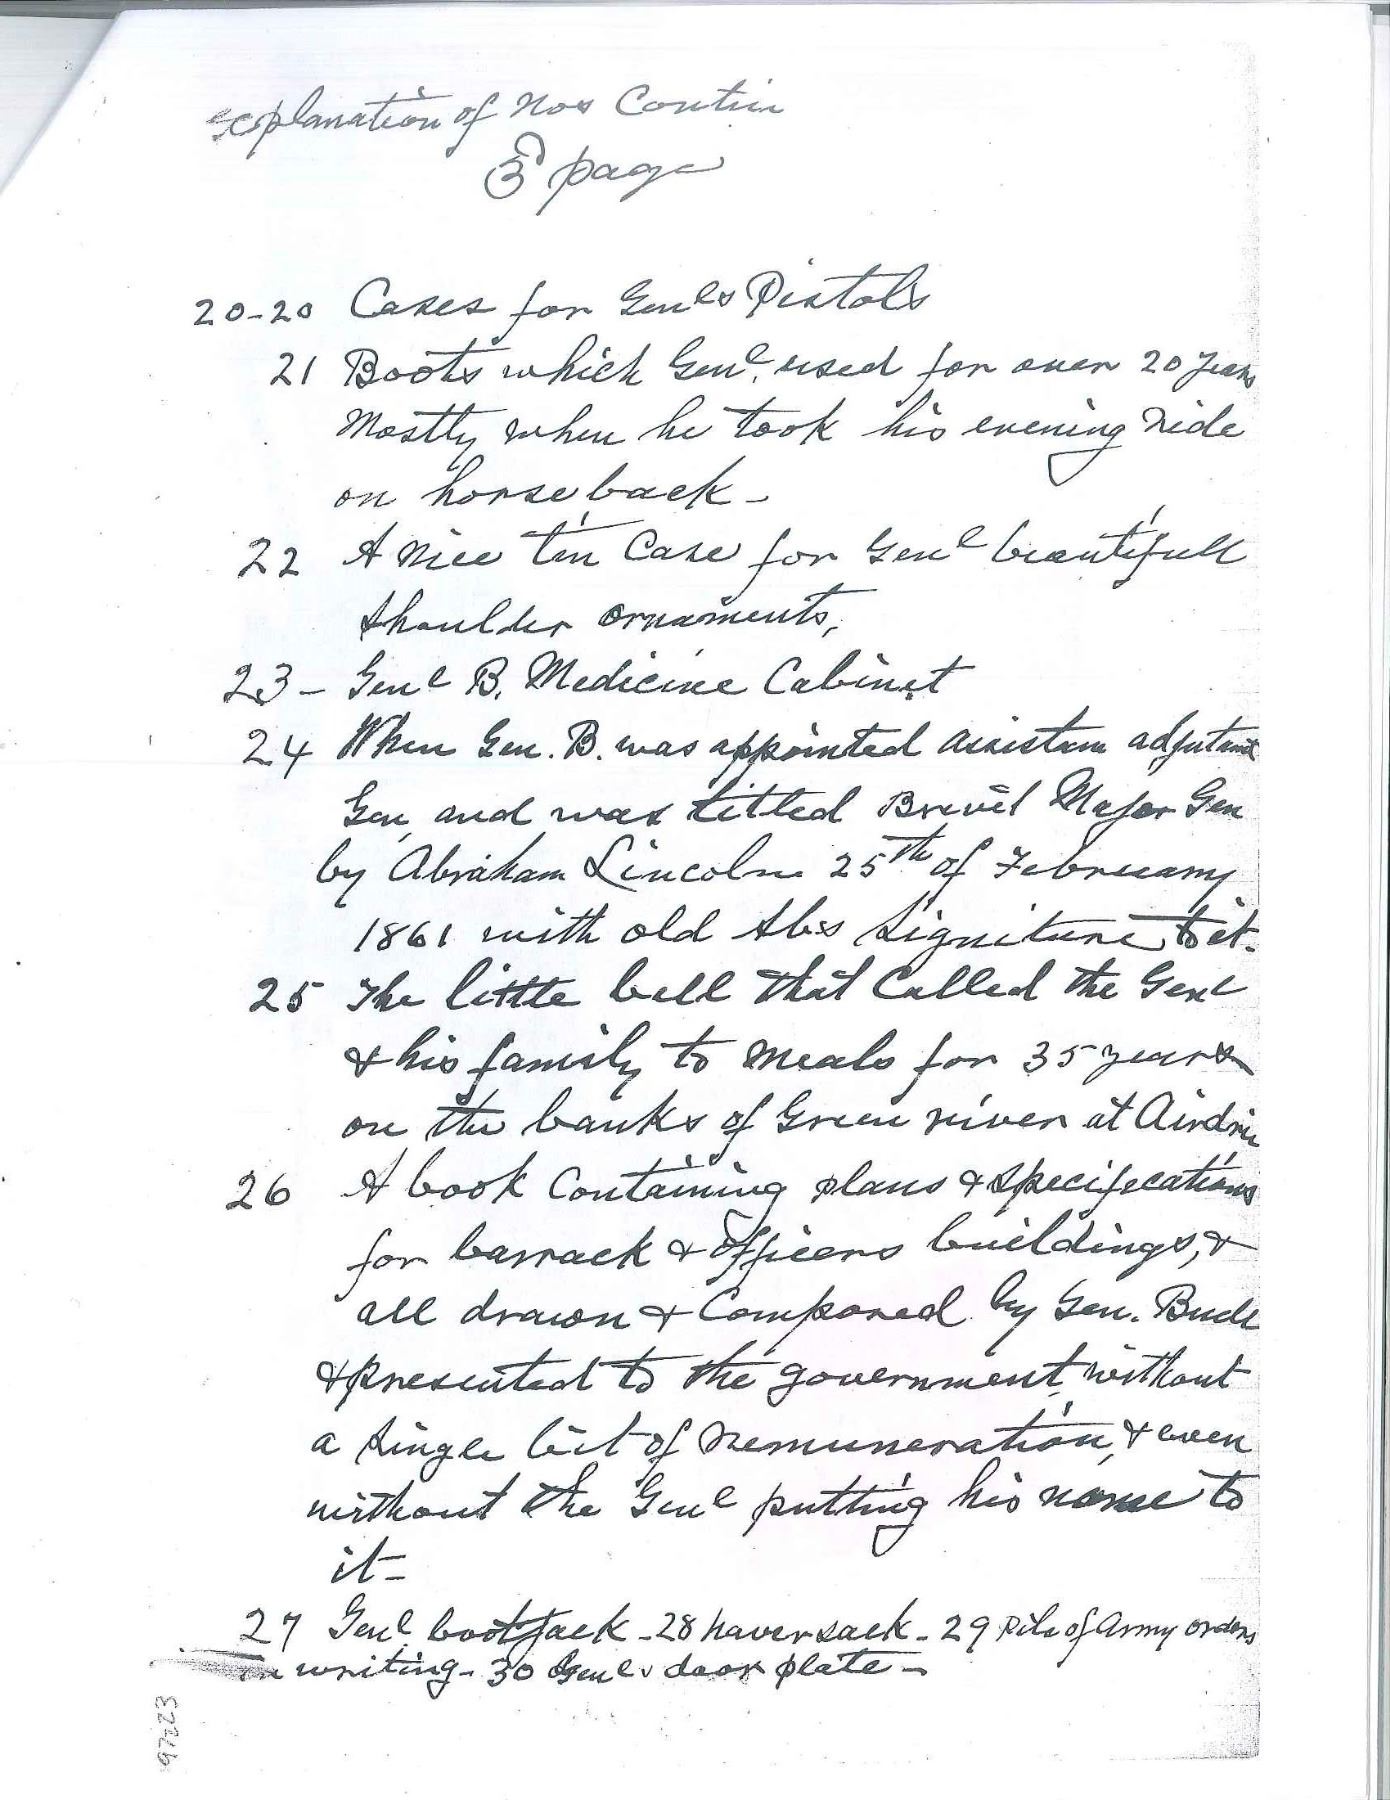 explanation of Nos Contin
3 page
20-20 Cases for Genls Pistols
21 Boots which Genl. used for over 20 years
Mostly when he took his evening ride
on horseback -
22 A Nice tin Case for Genl beautifull
shoulder ornaments,
23 - Genl B. Medicine Cabinet
24 When Gen. B. was appointed assistan adjutant
Gen, and was titled Brevet Major Gen
by Abraham Lincoln 25th of February
1861 with old Abs Signiture to it.
25 The little bell that Called the Genl
& his family to Meals for 35 years
on the banks of Green river at Airdrie
26 A book Containing plans & specifecations
for barrack & officers buildings, &
all drawn & Composed by Gen. Buell
& presented to the government without
a single bit of remuneration, & even
without the Genl putting his name to
it -
27 Genl bootjack - 28 haversack - 29 Pile of Army orders
in writing - 30 Genls door plate -